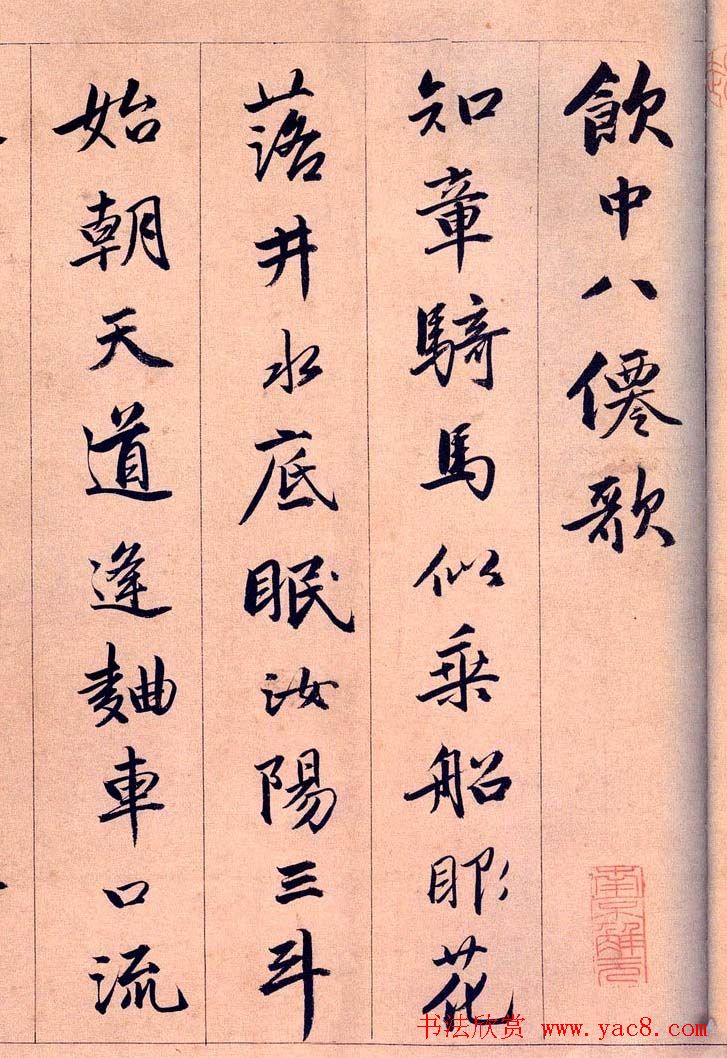 飲中八僊歌
知章騎馬似乗船眼花
落井水底眠汝陽三斗
始朝天道逢麯車口流
南京解元
书法欣赏 www.yac8.com